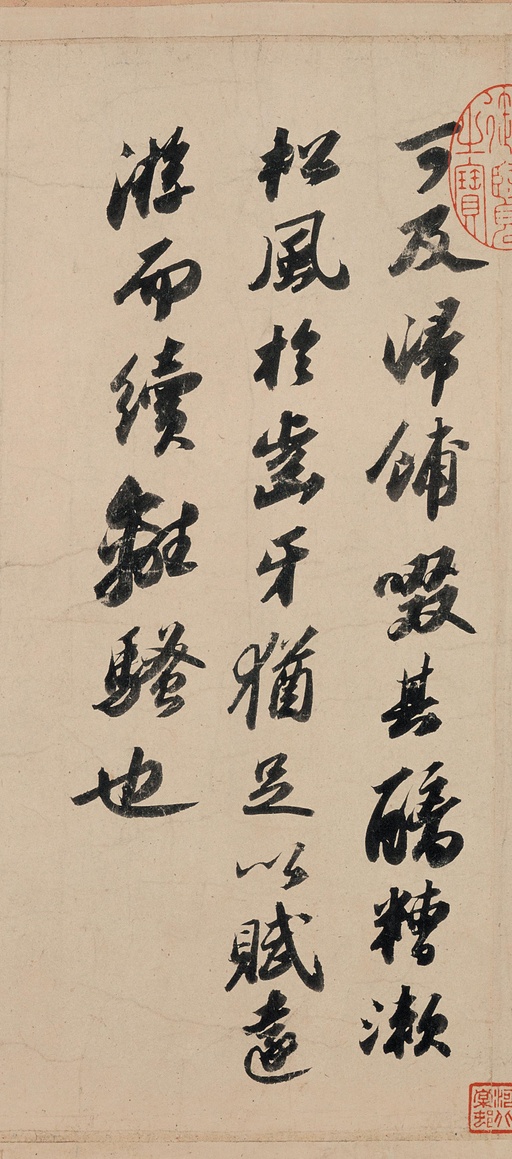 可及歸餔啜其醨糟漱
松風於齒牙猶足以賦遠
游而續離騷也